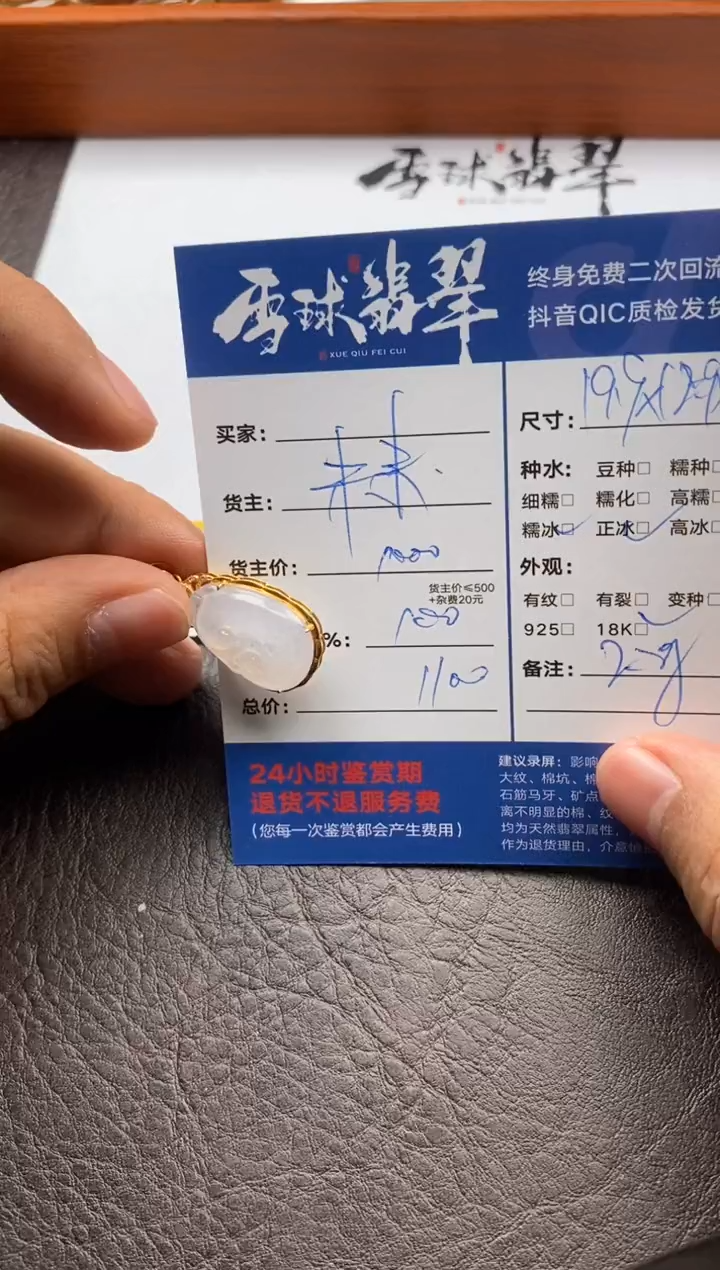 雪球翡翠
雪球翡翠
XUE QIU FEI CUI
终身免费二次回流
抖音QIC质检发货
买家：
货主：
货主价： 1000
货主价≤500
+杂费20元
%： 100
总价： 1100
尺寸： 19.9×12.9
种水： 豆种□ 糯种□
细糯□ 糯化□ 高糯□
糯冰□ 正冰□ 高冰□
外观：
有纹□ 有裂□ 变种□
925□ 18K□
备注：
24小时鉴赏期
退货不退服务费
（您每一次鉴赏都会产生费用）
建议录屏：影响
大纹、棉坑、棉
石筋马牙、矿点
离不明显的棉、纹
均为天然翡翠属性，
作为退货理由，介意慎